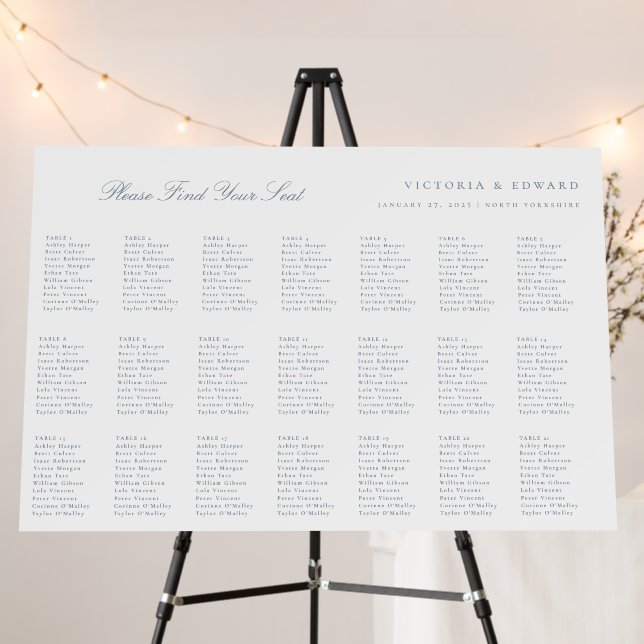 Please Find Your Seat
VICTORIA & EDWARD
JANUARY 27, 2025 | NORTH YORKSHIRE
TABLE 1
Ashley Harper
Brett Culver
Isaac Robertson
Yvette Morgan
Ethan Tate
William Gibson
Lola Vincent
Peter Vincent
Corinne O'Malley
Taylor O'Malley
TABLE 2
Ashley Harper
Brett Culver
Isaac Robertson
Yvette Morgan
Ethan Tate
William Gibson
Lola Vincent
Peter Vincent
Corinne O'Malley
Taylor O'Malley
TABLE 3
Ashley Harper
Brett Culver
Isaac Robertson
Yvette Morgan
Ethan Tate
William Gibson
Lola Vincent
Peter Vincent
Corinne O'Malley
Taylor O'Malley
TABLE 4
Ashley Harper
Brett Culver
Isaac Robertson
Yvette Morgan
Ethan Tate
William Gibson
Lola Vincent
Peter Vincent
Corinne O'Malley
Taylor O'Malley
TABLE 5
Ashley Harper
Brett Culver
Isaac Robertson
Yvette Morgan
Ethan Tate
William Gibson
Lola Vincent
Peter Vincent
Corinne O'Malley
Taylor O'Malley
TABLE 6
Ashley Harper
Brett Culver
Isaac Robertson
Yvette Morgan
Ethan Tate
William Gibson
Lola Vincent
Peter Vincent
Corinne O'Malley
Taylor O'Malley
TABLE 7
Ashley Harper
Brett Culver
Isaac Robertson
Yvette Morgan
Ethan Tate
William Gibson
Lola Vincent
Peter Vincent
Corinne O'Malley
Taylor O'Malley
TABLE 8
Ashley Harper
Brett Culver
Isaac Robertson
Yvette Morgan
Ethan Tate
William Gibson
Lola Vincent
Peter Vincent
Corinne O'Malley
Taylor O'Malley
TABLE 9
Ashley Harper
Brett Culver
Isaac Robertson
Yvette Morgan
Ethan Tate
William Gibson
Lola Vincent
Peter Vincent
Corinne O'Malley
Taylor O'Malley
TABLE 10
Ashley Harper
Brett Culver
Isaac Robertson
Yvette Morgan
Ethan Tate
William Gibson
Lola Vincent
Peter Vincent
Corinne O'Malley
Taylor O'Malley
TABLE 11
Ashley Harper
Brett Culver
Isaac Robertson
Yvette Morgan
Ethan Tate
William Gibson
Lola Vincent
Peter Vincent
Corinne O'Malley
Taylor O'Malley
TABLE 12
Ashley Harper
Brett Culver
Isaac Robertson
Yvette Morgan
Ethan Tate
William Gibson
Lola Vincent
Peter Vincent
Corinne O'Malley
Taylor O'Malley
TABLE 13
Ashley Harper
Brett Culver
Isaac Robertson
Yvette Morgan
Ethan Tate
William Gibson
Lola Vincent
Peter Vincent
Corinne O'Malley
Taylor O'Malley
TABLE 14
Ashley Harper
Brett Culver
Isaac Robertson
Yvette Morgan
Ethan Tate
William Gibson
Lola Vincent
Peter Vincent
Corinne O'Malley
Taylor O'Malley
TABLE 15
Ashley Harper
Brett Culver
Isaac Robertson
Yvette Morgan
Ethan Tate
William Gibson
Lola Vincent
Peter Vincent
Corinne O'Malley
Taylor O'Malley
TABLE 16
Ashley Harper
Brett Culver
Isaac Robertson
Yvette Morgan
Ethan Tate
William Gibson
Lola Vincent
Peter Vincent
Corinne O'Malley
Taylor O'Malley
TABLE 17
Ashley Harper
Brett Culver
Isaac Robertson
Yvette Morgan
Ethan Tate
William Gibson
Lola Vincent
Peter Vincent
Corinne O'Malley
Taylor O'Malley
TABLE 18
Ashley Harper
Brett Culver
Isaac Robertson
Yvette Morgan
Ethan Tate
William Gibson
Lola Vincent
Peter Vincent
Corinne O'Malley
Taylor O'Malley
TABLE 19
Ashley Harper
Brett Culver
Isaac Robertson
Yvette Morgan
Ethan Tate
William Gibson
Lola Vincent
Peter Vincent
Corinne O'Malley
Taylor O'Malley
TABLE 20
Ashley Harper
Brett Culver
Isaac Robertson
Yvette Morgan
Ethan Tate
William Gibson
Lola Vincent
Peter Vincent
Corinne O'Malley
Taylor O'Malley
TABLE 21
Ashley Harper
Brett Culver
Isaac Robertson
Yvette Morgan
Ethan Tate
William Gibson
Lola Vincent
Peter Vincent
Corinne O'Malley
Taylor O'Malley